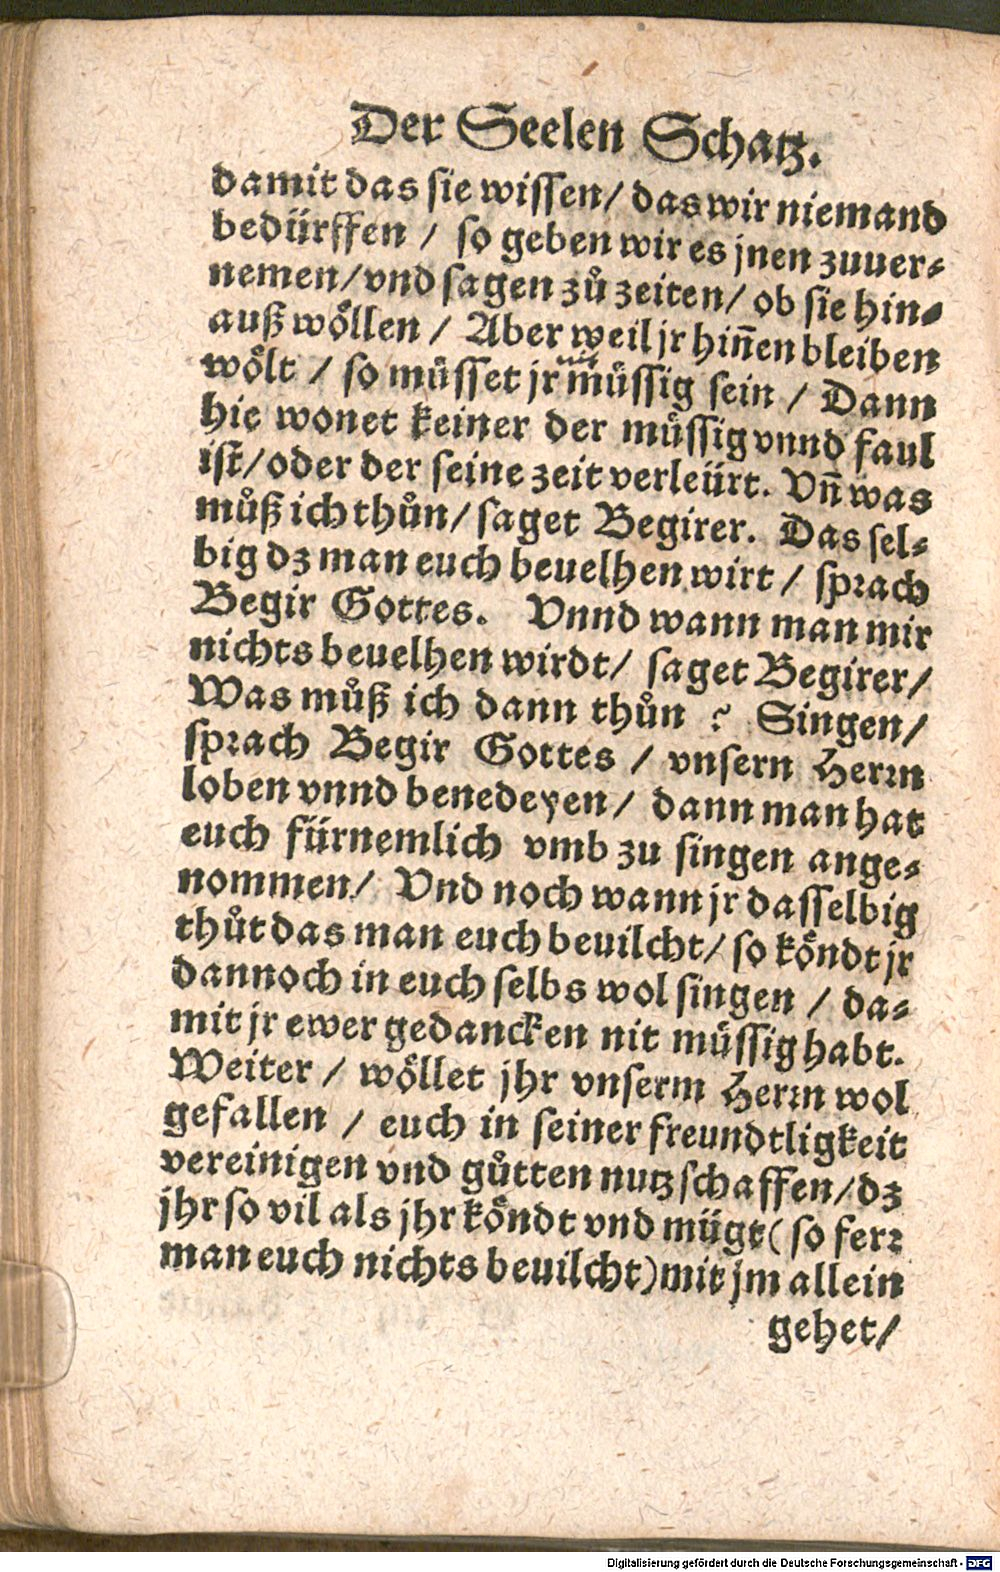 Der Seelen Schatz.
damit das sie wissen/ das wir niemand
bedürffen / so geben wir es jnen zuuer-
nemen/vnd sagen zů zeiten/ ob sie hin-
auß wöllen / Aber weil jr hiñen bleiben
nit
wölt / so müsset jr müssig sein / Dann
hie wonet keiner der müssig vnnd faul
ist/oder der seine zeit verleürt. Vñ was
můß ich thůn/ saget Begirer. Das sel-
big dz man euch beuelhen wirt / sprach
Begir Gottes. Vnnd wann man mir
nichts beuelhen wirdt/ saget Begirer/
Was můß ich dann thůn ? Singen/
sprach Begir Gottes / vnsern Herrn
loben vnnd benedeyen/ dann man hat
euch fürnemlich vmb zu singen ange-
nommen/ Vnd noch wann jr dasselbig
thůt das man euch beuilcht/ so köndt jr
dannoch in euch selbs wol singen / da-
mit jr ewer gedancken nit müssig habt.
Weiter / wöllet jhr vnserm Herrn wol
gefallen / euch in seiner freundtligkeit
vereinigen vnd gůtten nutz schaffen/dz
jhr so vil als jhr köndt vnd mügt( so ferr
man euch nichts beuilcht)mit jm allein
gehet/
Digitalisierung gefördert durch die Deutsche Forschungsgemeinschaft - DFG